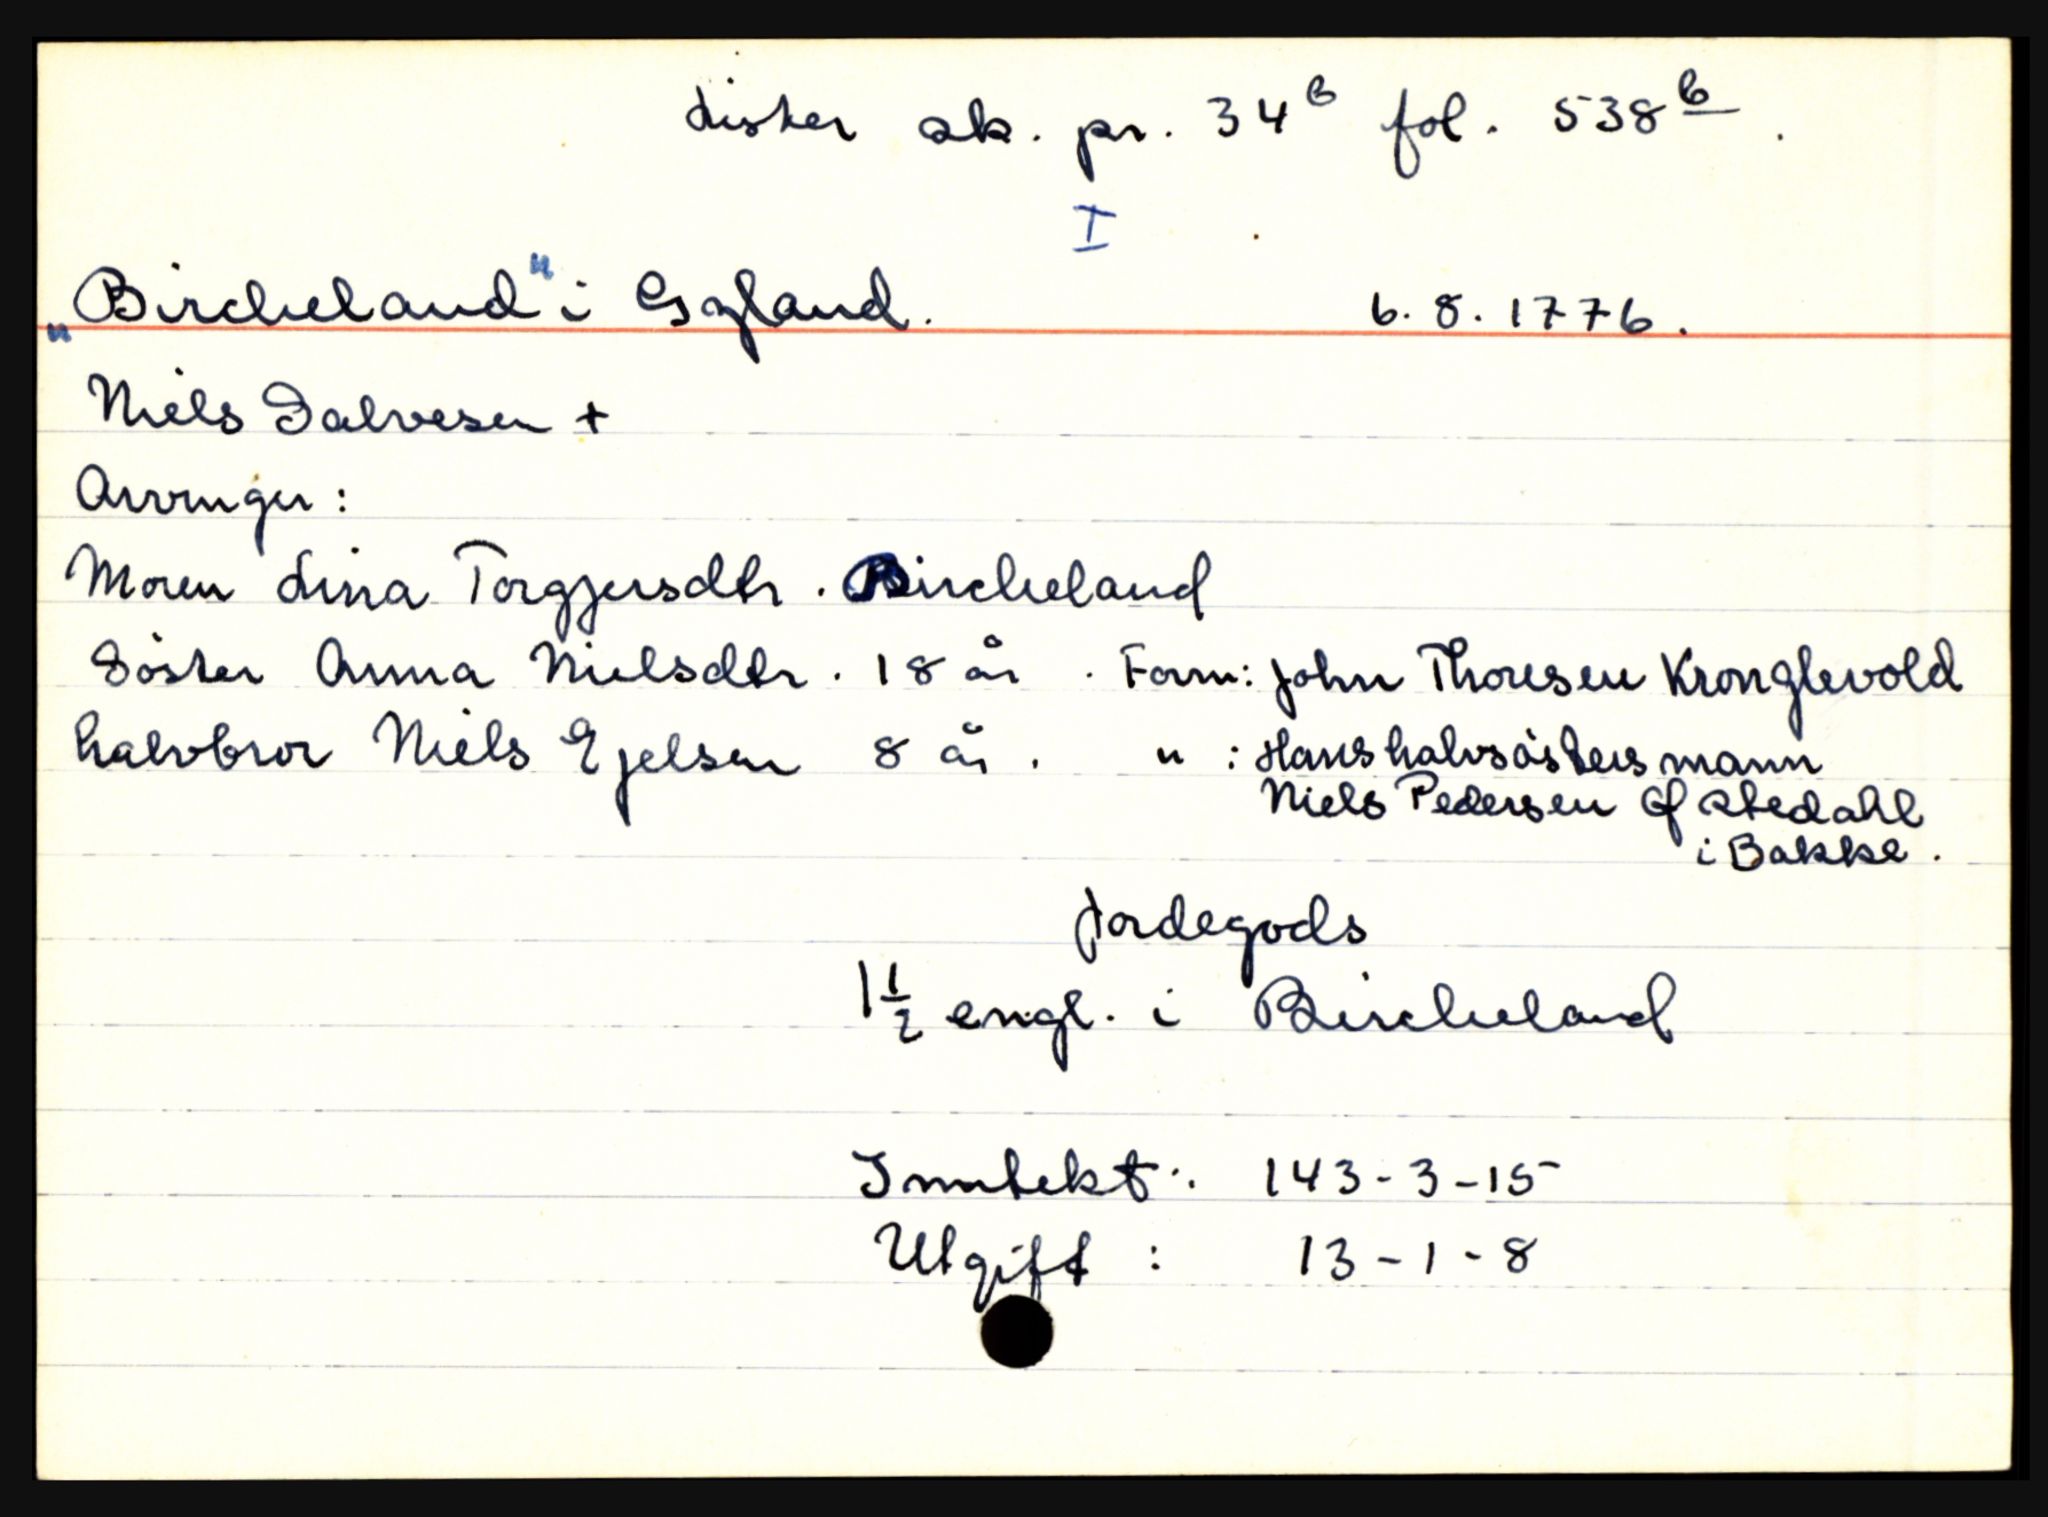 Lister sk. pr. 34B fol. 538b.
I
"Bircheland" i Gyland. 6.8.1776.
Niels Salvesen +
Arvinger:
Moren Sina Torgjersdtr. Bircheland
Söster Anna Nielsdtr. 18 år. Form: John Thoresen Kronglevold
halvbror Niels Ejelsen 8 år. " : Hans halvsösters mann
Niels Pedersen Öf stedahl
i Bakke.
Jordegods
1 1/2 engl. i Bircheland
Inntekt: 143-3-15
Utgift : 13-1-8